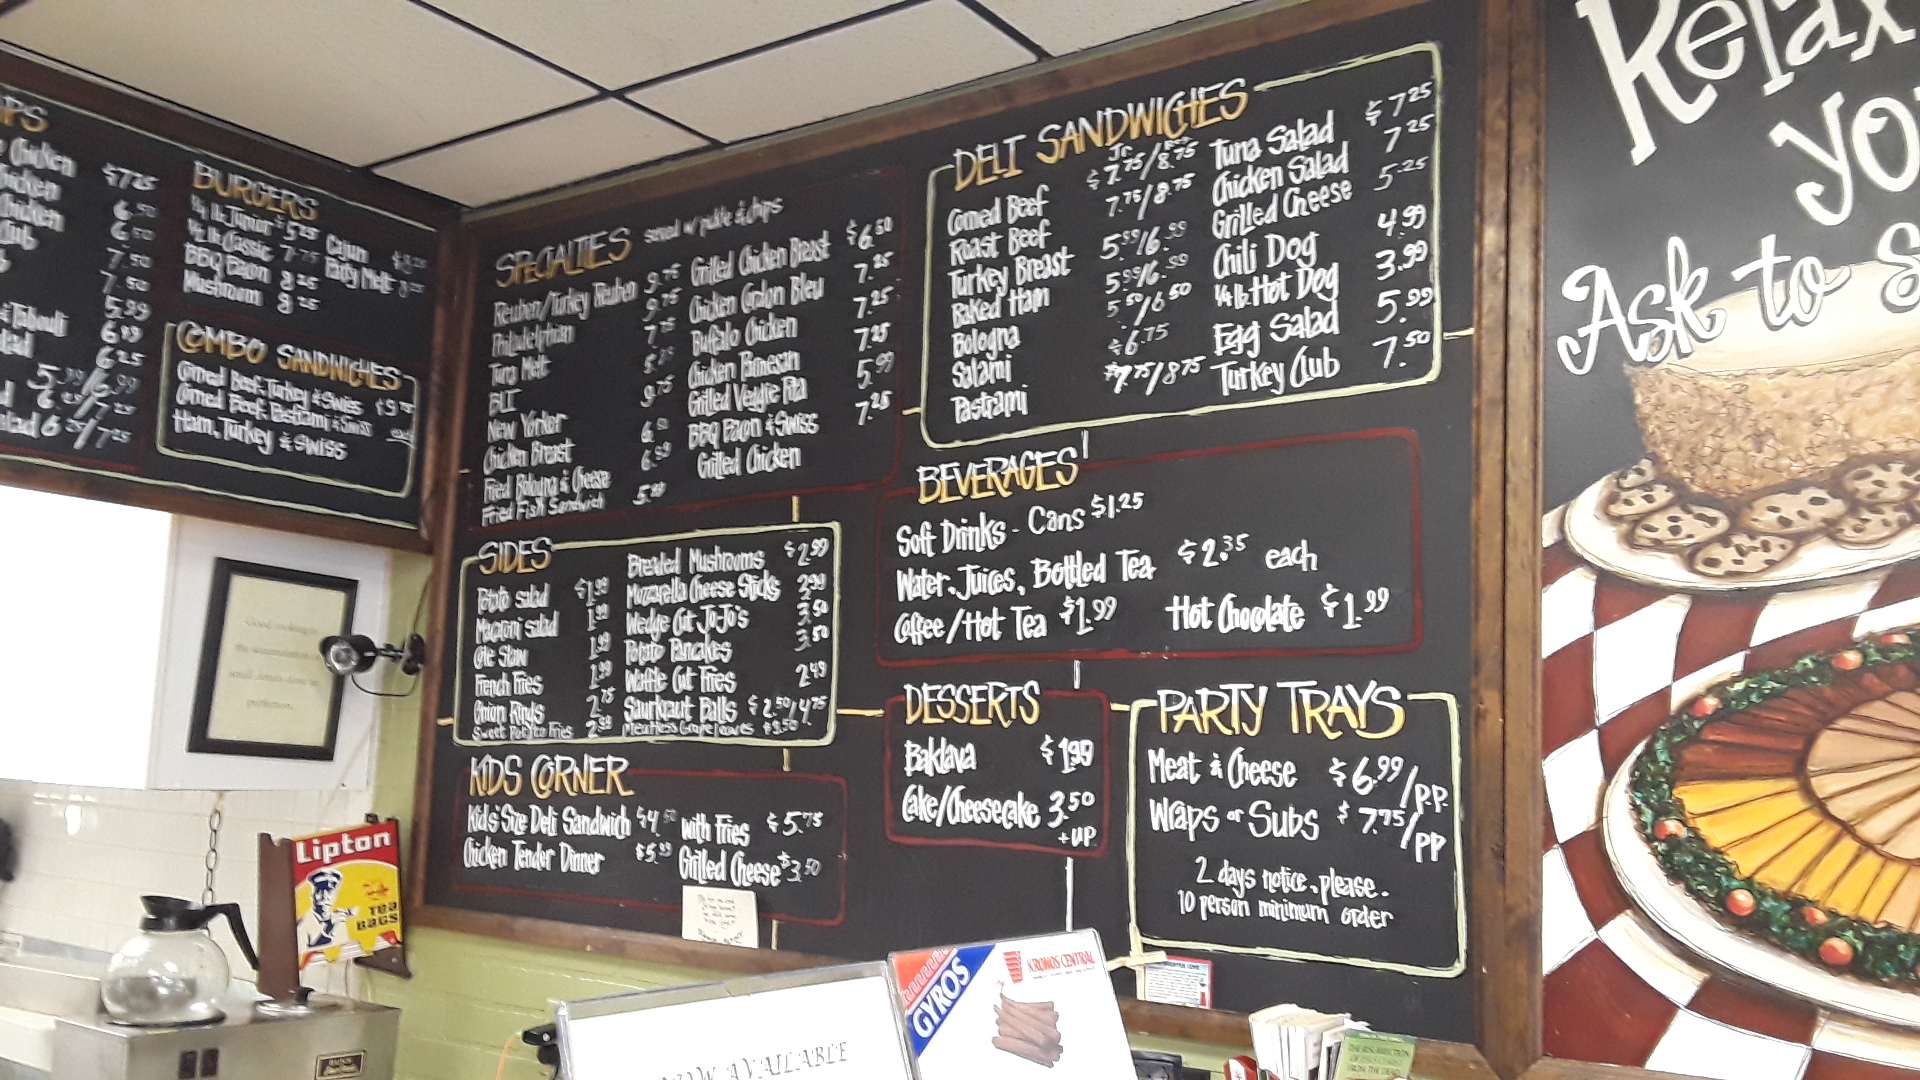 Chicken $7.25
6.50
Chicken 6.50
Club 7.50
7.50
5.99
& Tabouli 6.99
6.25
5.99/6.99
6.25/7.25
6.25/7.25
BURGERS
1/4 lb Junior $5.25
1/2 lb Classic 7.75
BBQ Bacon 8.25
Mushroom 8.25
Cajun $8.25
Patty Melt 8.25
COMBO SANDWICHES
Corned Beef, Turkey & Swiss $9.75
Corned Beef, Pastrami & Swiss each
Ham, Turkey & Swiss
SPECIALTIES served w/ pickle & chips
Reuben/Turkey Reuben 9.75
Philadelphian 9.75
Tuna Melt 7.75
BLT
New Yorker 9.75
Chicken Breast 6.50
Fried Bologna & Cheese 6.99
Fried Fish Sandwich 5.99
Grilled Chicken Breast $6.50
Chicken Cordon Bleu 7.25
Buffalo Chicken 7.25
Chicken Parmesan 7.25
Grilled Veggie Pita 5.99
BBQ Bacon & Swiss 7.25
Grilled Chicken
SIDES
Potato salad $1.99
Macaroni salad 1.99
Cole Slaw 1.99
French Fries 1.99
Onion Rings 2.75
Sweet Potato Fries 2.99
Breaded Mushrooms $2.99
Mozzarella Cheese Sticks 3.99
Wedge Cut Jo-Jo's 3.50
Potato Pancakes 3.50
Waffle Cut Fries 2.49
Saurkraut Balls $2.50/4.75
Meatless Grape leaves $3.50
KIDS CORNER
Kid's Size Deli Sandwich $4.50
Chicken Tender Dinner $5.99
with Fries $5.75
Grilled Cheese $3.50
DELI SANDWICHES
Jr
Corned Beef $7.75/8.75
Roast Beef 7.75/8.75
Turkey Breast 5.99/6.99
Baked Ham 5.99/6.99
Bologna 5.50/6.50
Salami $6.75
Pastrami $7.75/8.75
Tuna Salad $7.25
Chicken Salad 7.25
Grilled Cheese 5.25
Chili Dog 4.99
1/4 lb Hot Dog 3.99
Egg Salad 5.99
Turkey Club 7.50
BEVERAGES
Soft Drinks - Cans $1.25
Water, Juices, Bottled Tea $2.35 each
Coffee/Hot Tea $1.99 Hot Chocolate $1.99
DESSERTS
Baklava $1.99
Cake/Cheesecake 3.50
+ up
PARTY TRAYS
Meat & Cheese $6.99/p.p.
Wraps or Subs $7.75/pp
2 days notice, please.
10 person minimum order
Relax
Ask to
Good cooking is
the accumulation of
small details done to
perfection.
Lipton
TEA
BAGS
BUNN
GYROS
KRONOS CENTRAL
NOW AVAILABLE
THE RESURRECTION
OF JESUS CHRIST
FROM THE DEAD